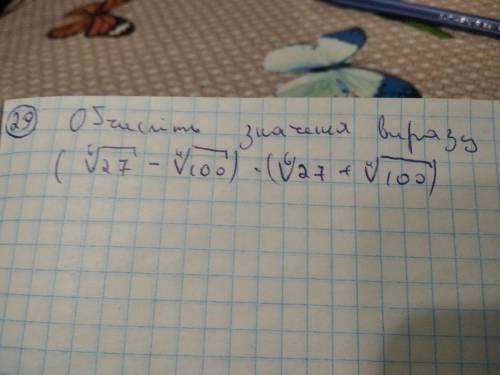 29 Обчисліть значення виразу
( ⁶√27 - ⁴√100 ) · ( ⁶√27 + ⁴√100 )